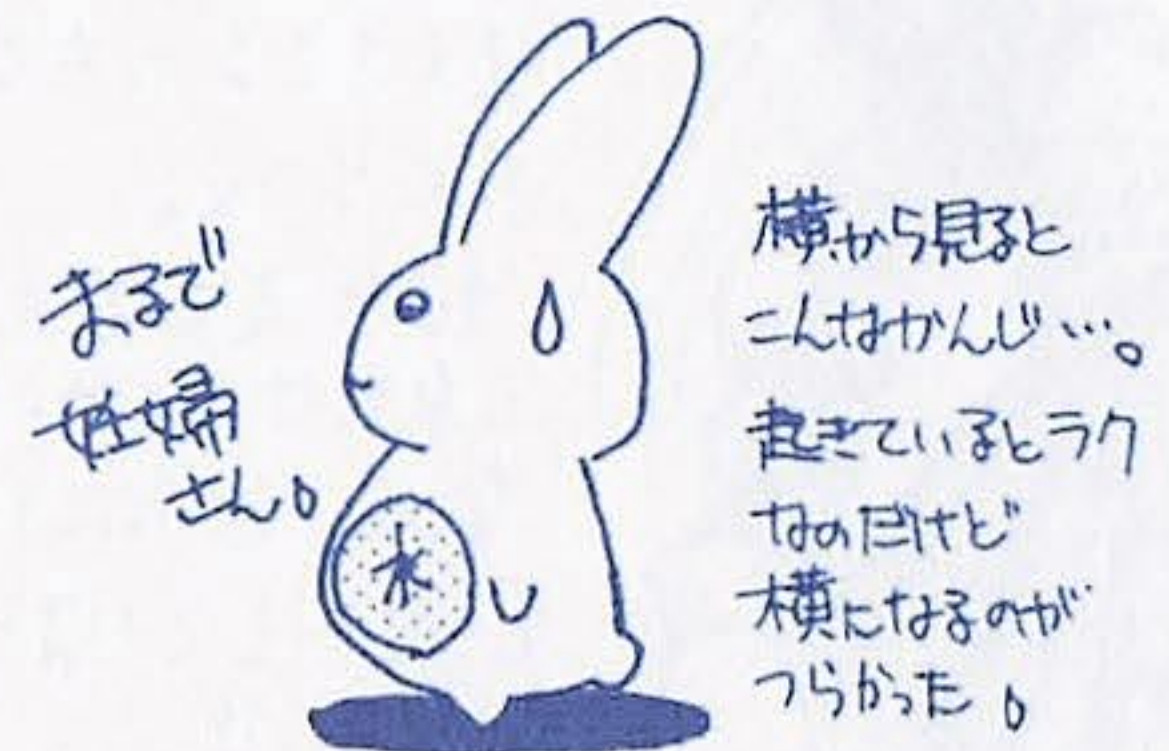 まるで
妊婦
さん。
水
横から見ると
こんなかんじ…。
起きているとラク
なのだけど
横になるのが
つらかった。